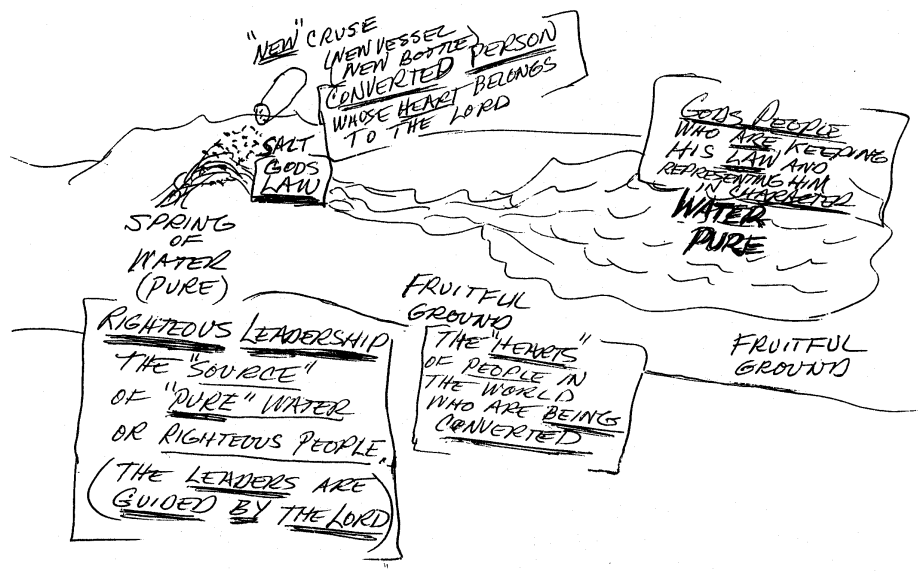 "NEW" CRUSE
(NEW VESSEL
(NEW BOTTLE)
CONVERTED PERSON
WHOSE HEART BELONGS
TO THE LORD
SALT
GODS
LAW
GODS PEOPLE
WHO ARE KEEPING
HIS LAW AND
REPRESENTING HIM
IN CHARACTER
WATER
PURE
SPRING
OF
WATER
(PURE)
RIGHTEOUS LEADERSHIP
THE "SOURCE"
OF "PURE" WATER
OR RIGHTEOUS PEOPLE.
(THE LEADERS ARE
GUIDED BY THE LORD)
FRUITFUL
GROUND
THE "HEARTS"
OF PEOPLE IN
THE WORLD
WHO ARE BEINGS
CONVERTED
FRUITFUL
GROUND